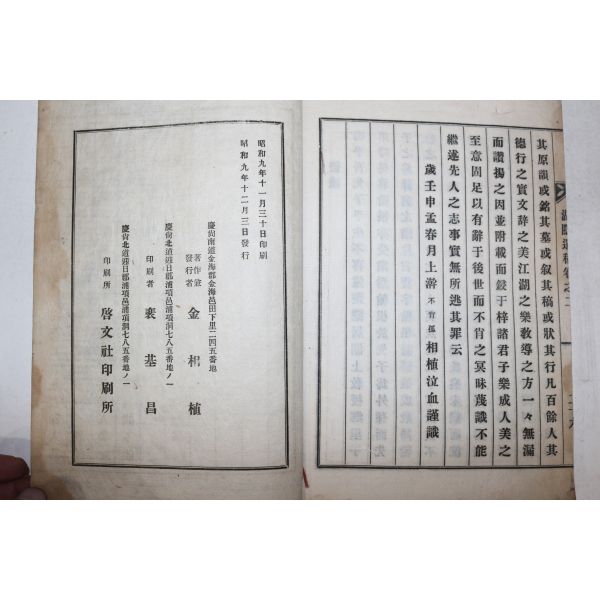 其原韻或銘其墓或叙其稿或狀其行凡百餘人其
德行之實文辞之美江湖之樂教導之方一々無漏
而讚揚之因並附載而鋟于梓諸君子樂成人美之
至意固足以有辭于後世而不肖之冥昧蔑識不能
繼述先人之志事實無所逃其罪云
歲壬申孟春月上澣 不肖孤 相植泣血謹識
昭和九年十一月三十日印刷
昭和九年十二月三日發行
慶尙南道金海郡金海邑田下里二四五番地
著作兼
發行者 金相植
慶尙北道迎日郡浦項邑浦項洞七八五番地ノ一
印刷者 裵基昌
慶尙北道迎日郡浦項邑浦項洞七八五番地ノ一
印刷所 啓文社印刷所